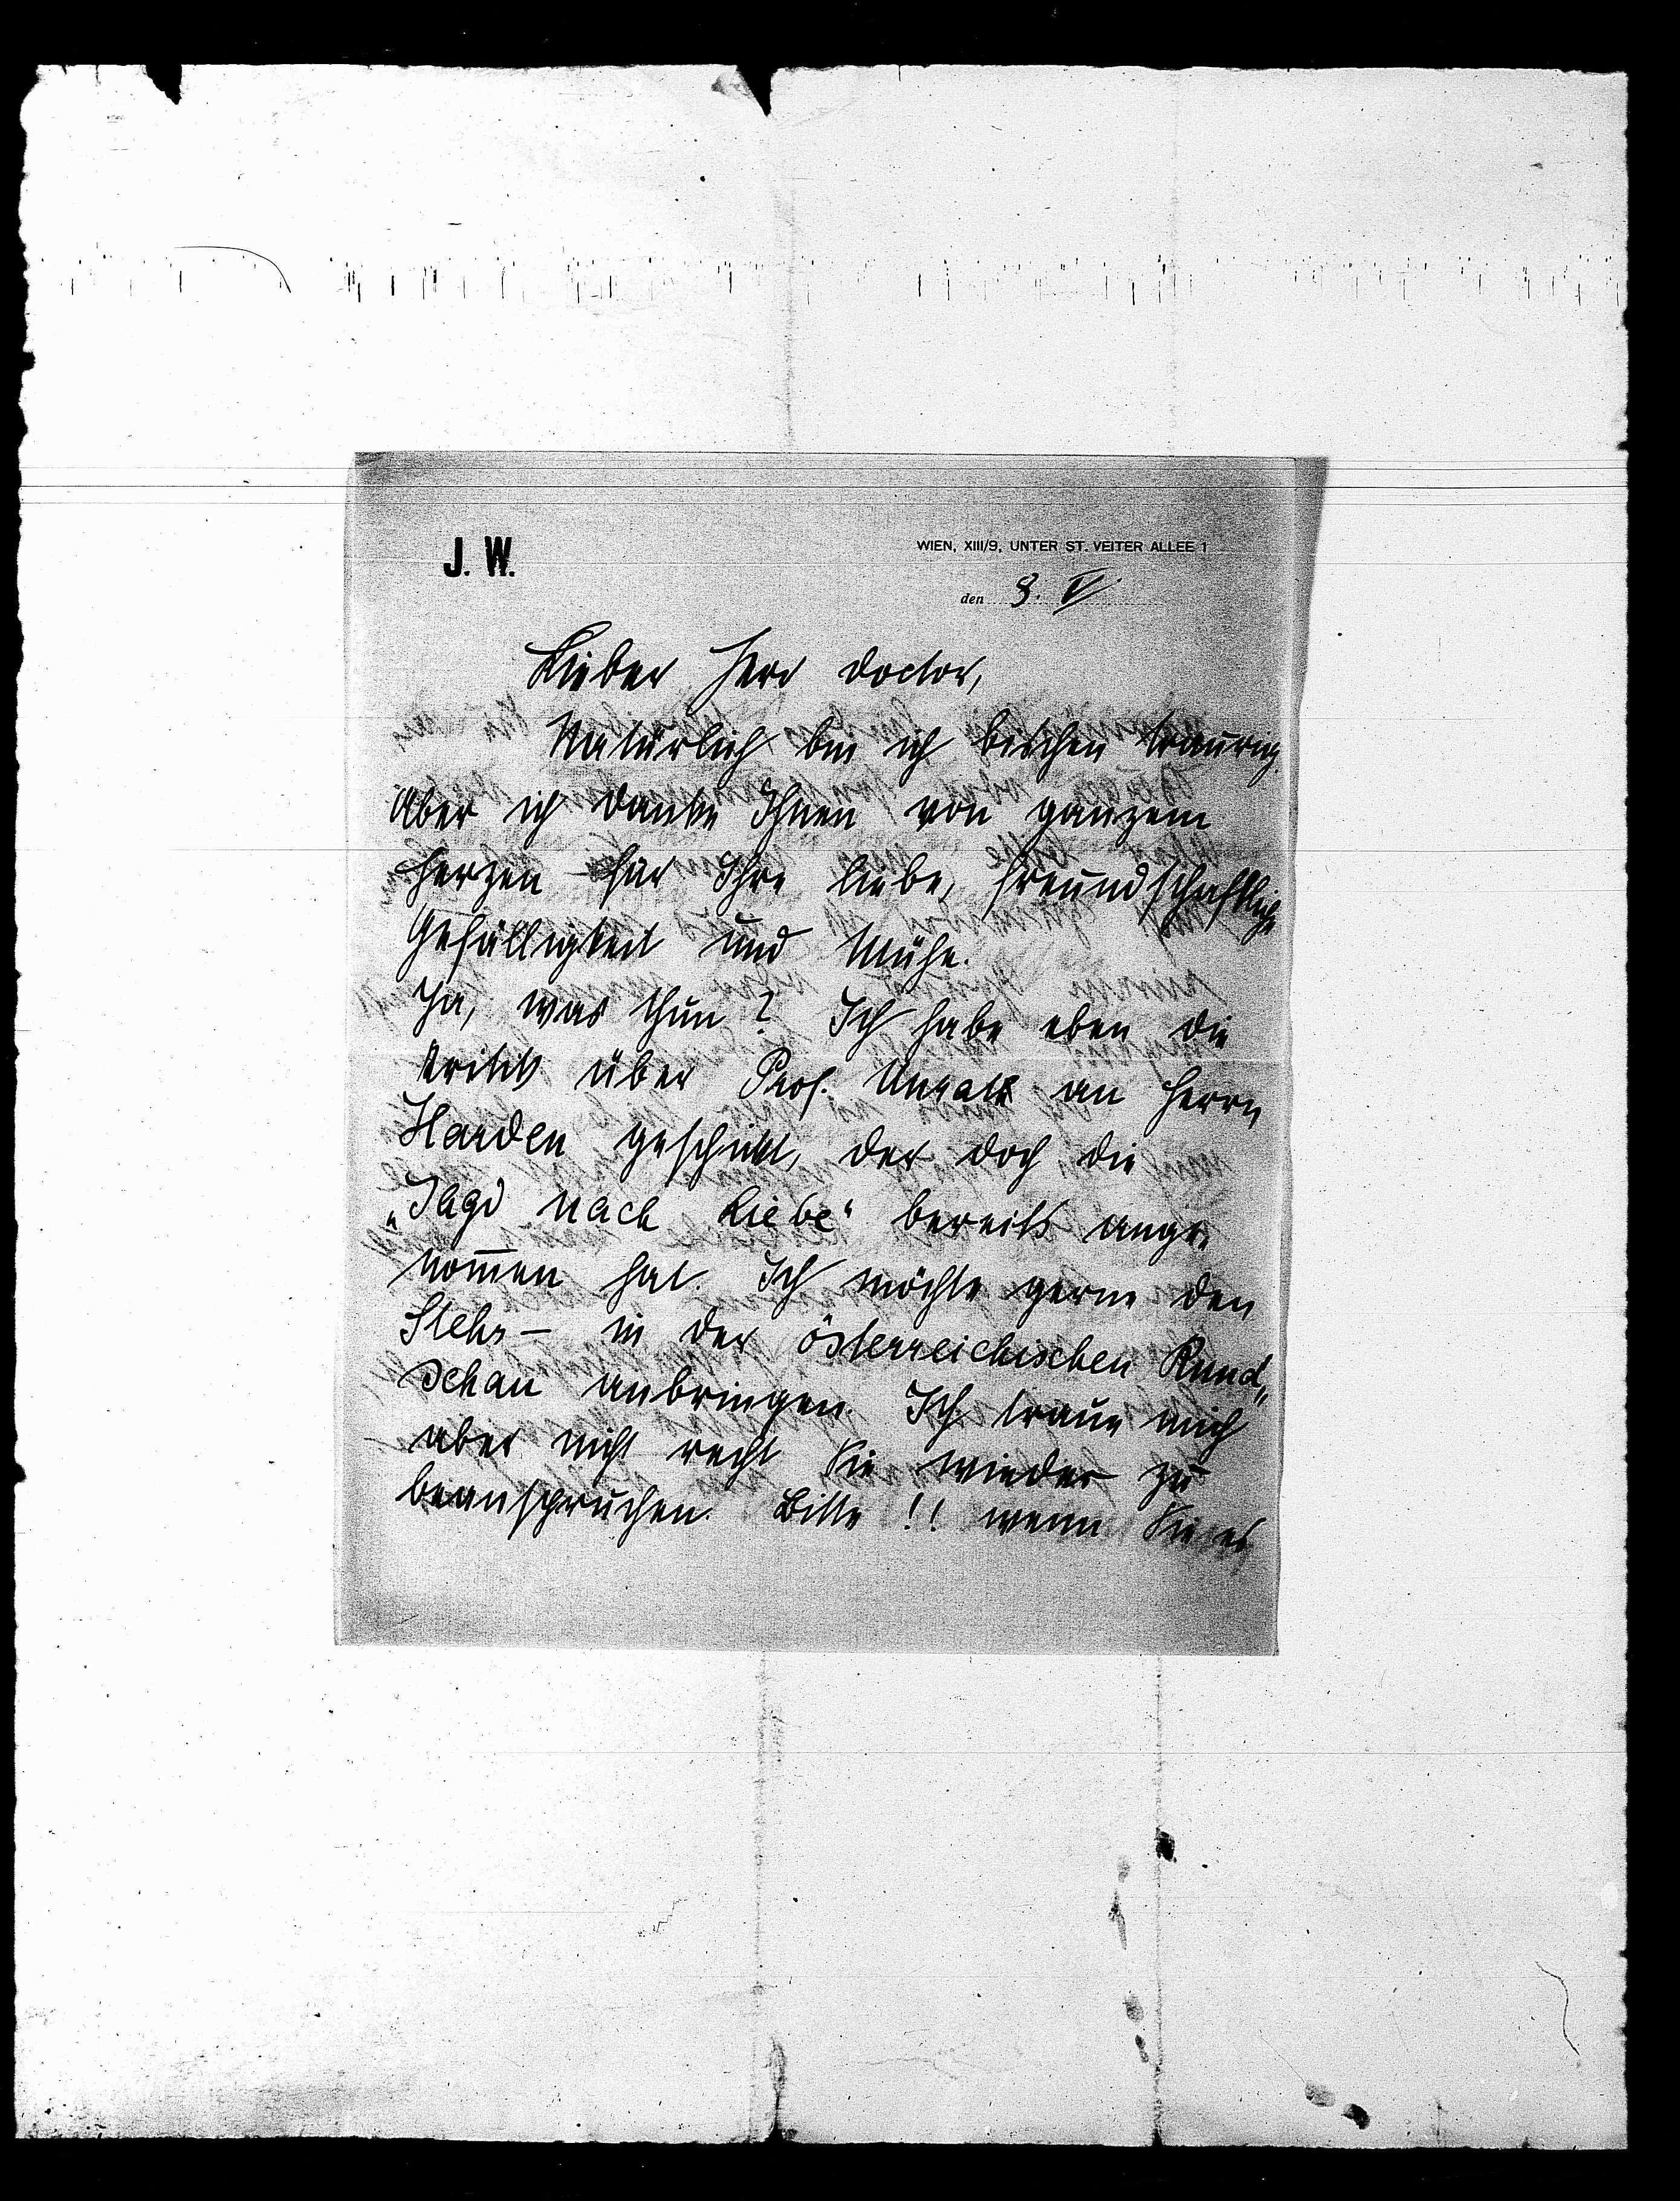 J. W.
WIEN, XIII/9, UNTER ST. VEITER ALLEE 1
den 8. V
Lieber Herr Doctor,
Natürlich bin ich bischen traurig.
Aber ich danke Ihnen von ganzem
Herzen für Ihre liebe, freundschaftliche
Gefälligkeit und Mühe.
Ja, was thun? Ich habe eben die
Kritik über Prof. Unrat an Herrn
Harden geschickt, der doch die
„Jagd nach Liebe“ bereits ange-
nom̅en hat. Ich möchte gerne den
Stehr – in der österreichischen Rund„
schau anbringen. Ich traue mich
aber nicht recht Sie wieder zu
beanspruchen. Bitte!! wenn Sie es